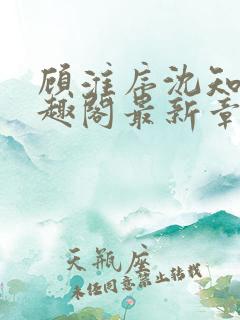 顾淮辰沈知
趣阁最新章
天瓶座
未经同意禁止转载